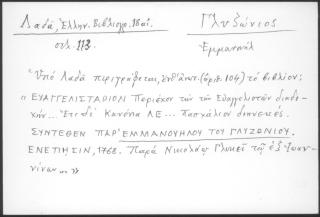 Λαδᾶ, Ἑλλην. Βιβλιογρ. 18 αἰ.
σελ. 113.
Γλυζώνιος
Ἐμμανουήλ
Ὑπό Λαδᾶ περιγράφεται, (ἀριθ. 104) τό βιβλίον:
"ΕΥΑΓΓΕΛΙΣΤΑΡΙΟΝ Περιέχον τήν τῶν Εὐαγγελιστῶν διαδο-
χήν... Ἔτι δέ Κανόνια ΛΕ... Πασχάλιον διηνεκές.
ΣΥΝΤΕΘΕΝ ΠΑΡ' ΕΜΜΑΝΟΥΗΛΟΥ ΤΟΥ ΓΛΥΖΩΝΙΟΥ.
ΕΝΕΤΙΗΣΙΝ, 1768. Παρά Νικολάῳ Γλυκεῖ τῷ ἐξ Ἰωαν-
νίνων